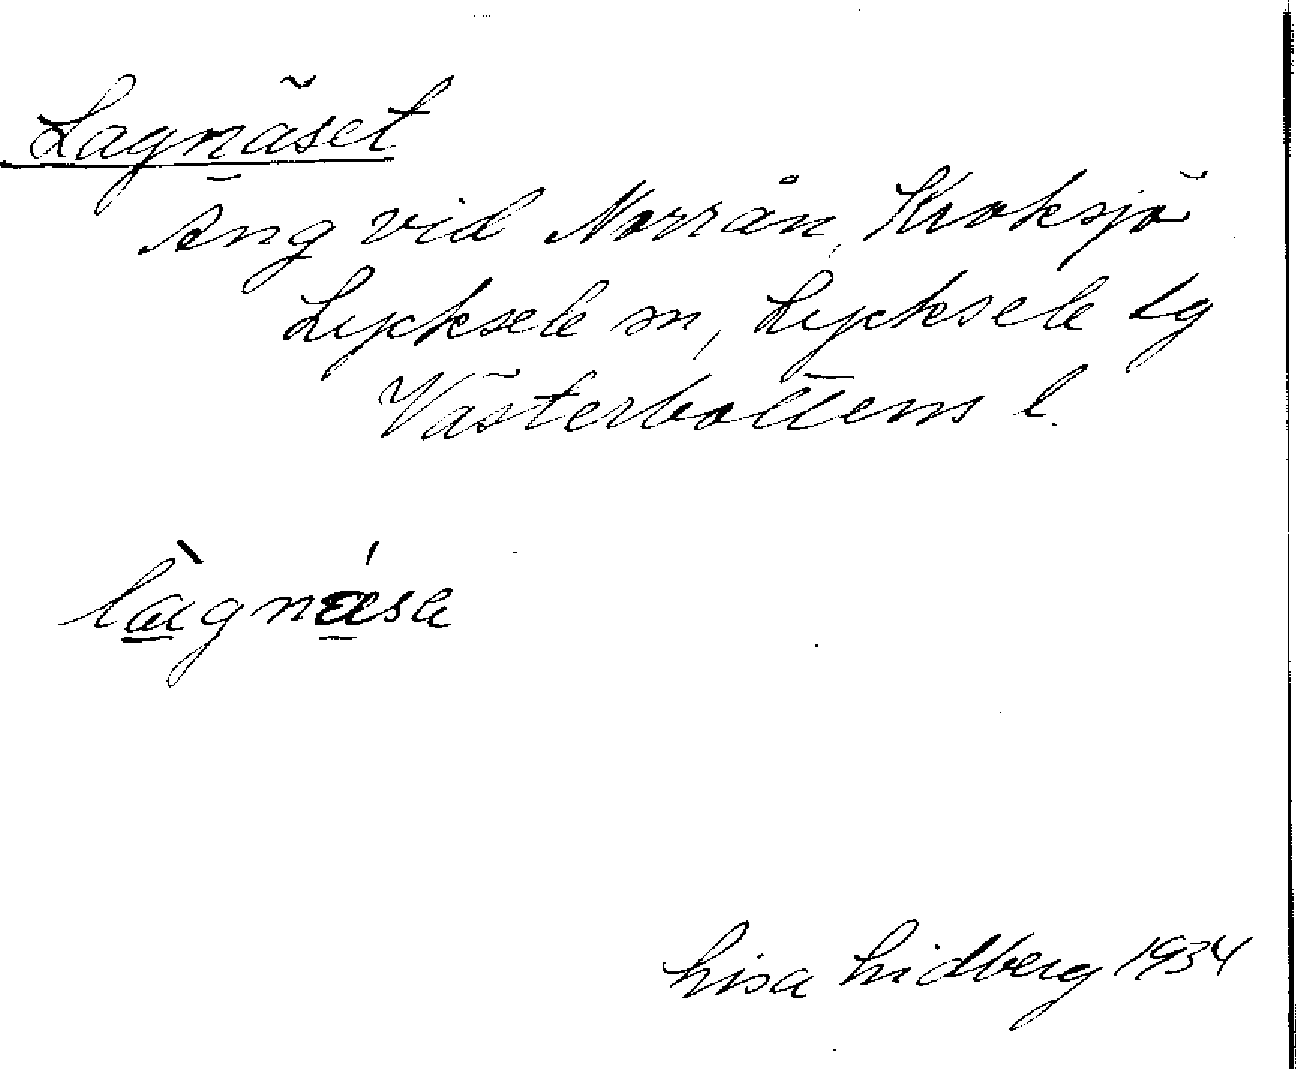 Lagnäset
äng vid Norrån, Kroksjö
Lycksele sn, Lycksele lg
Västerbottens l.
làgnǽsə
Lisa Lidberg 1934